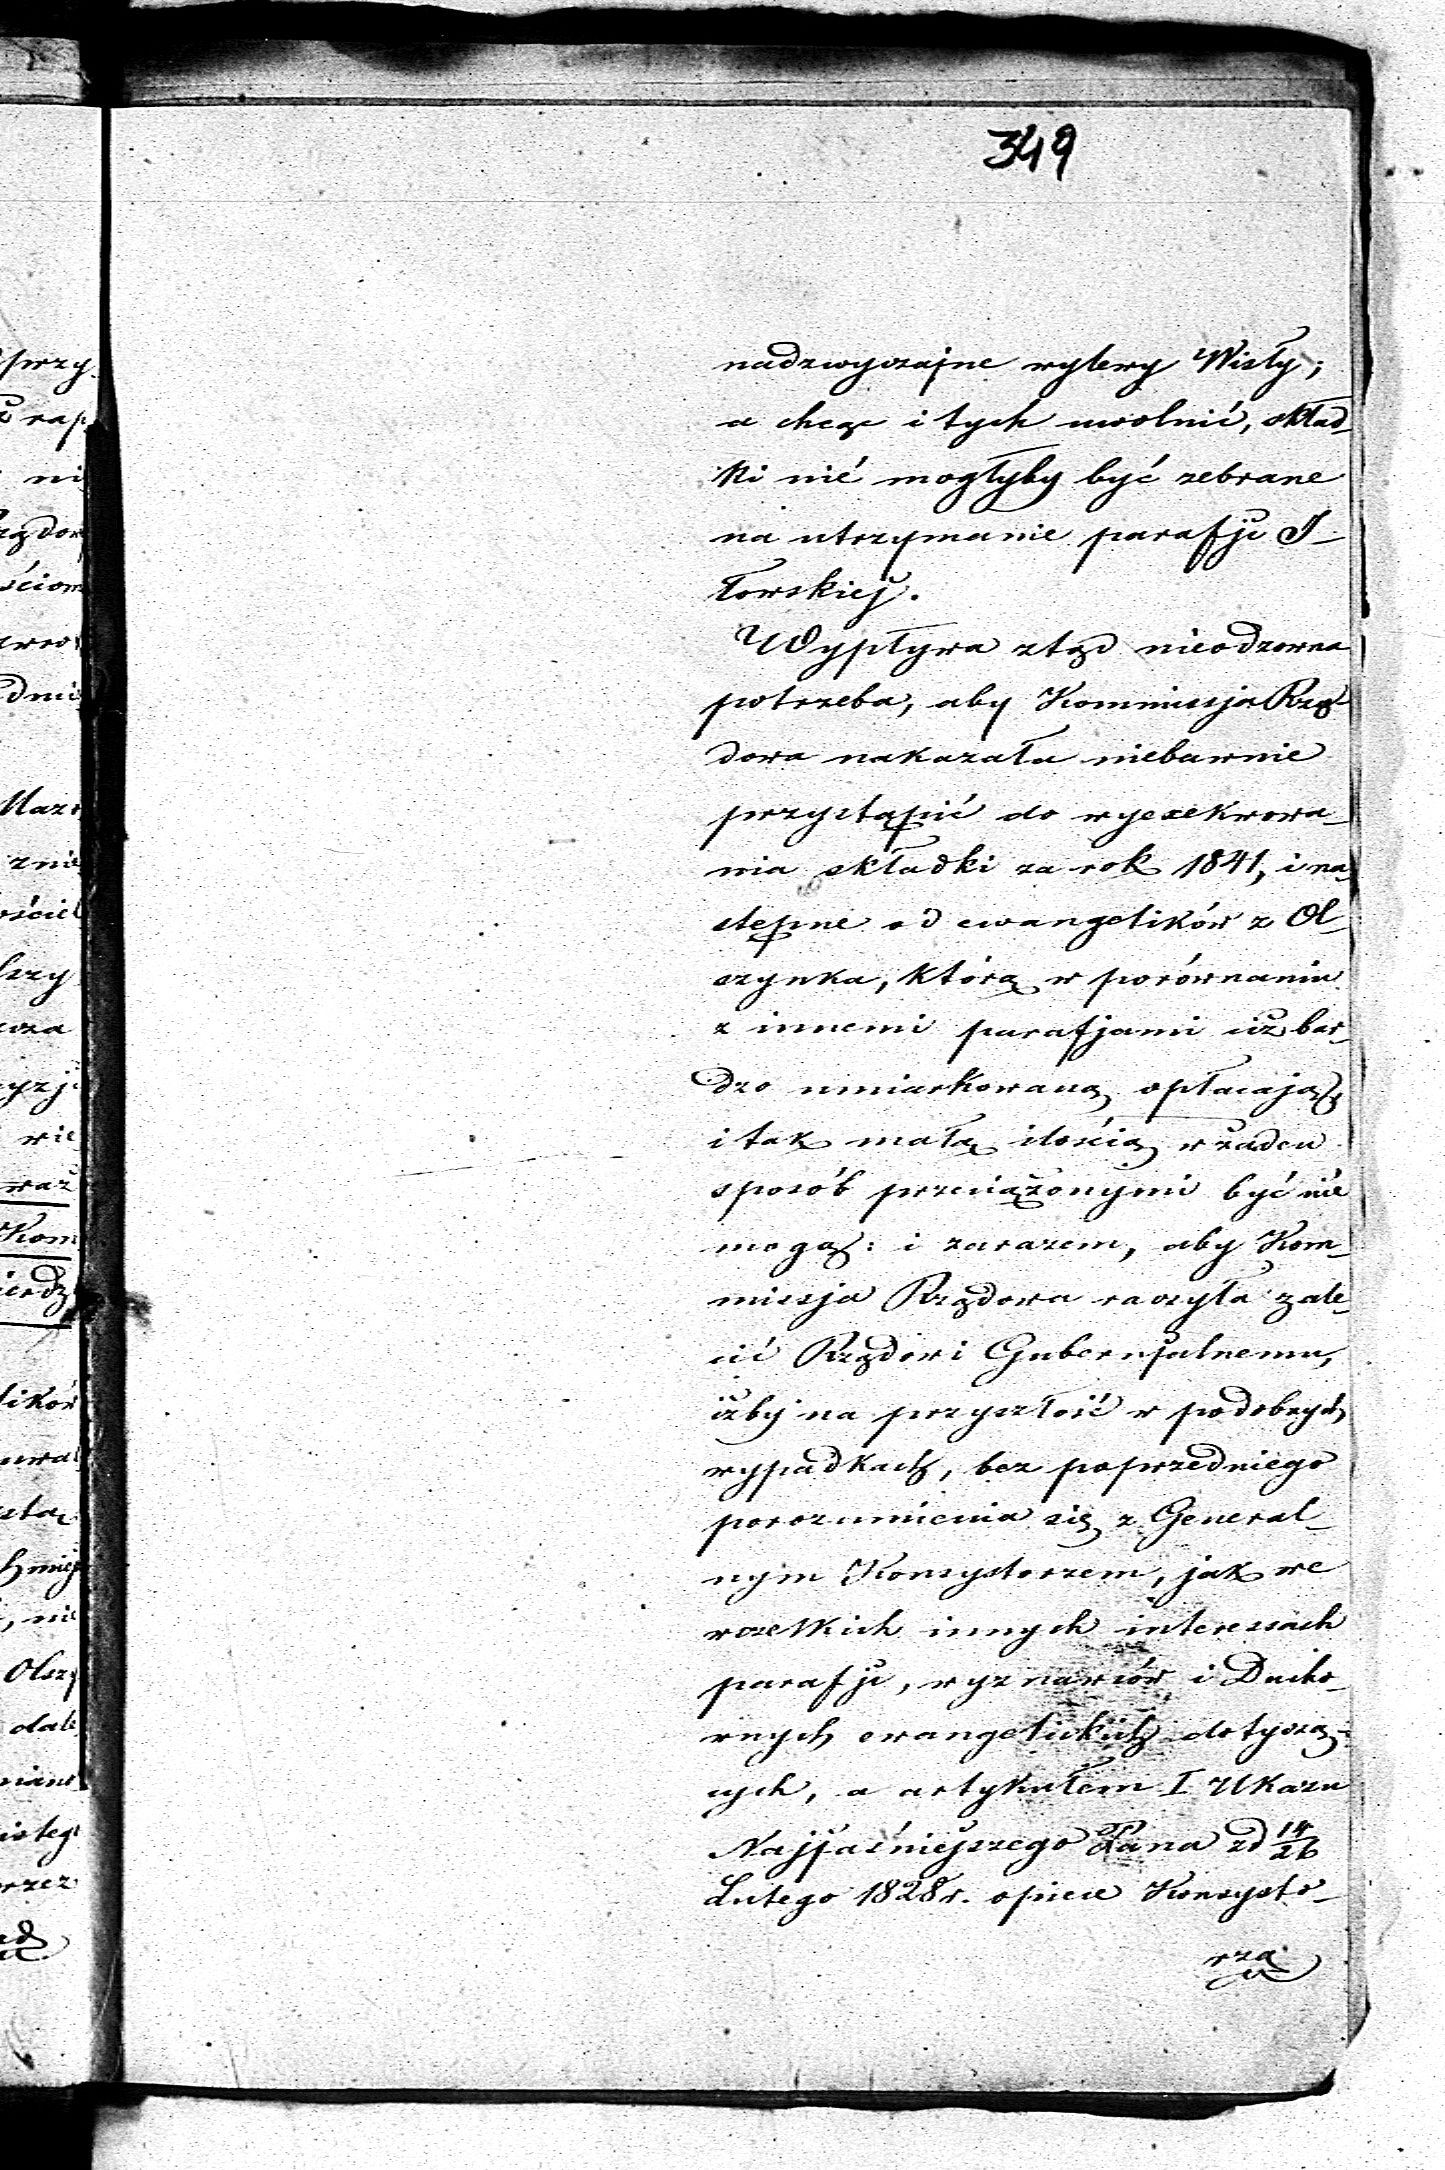 349
nadzwyczajne wylewy Wisły;
a chcąc i tych uwolnić, skład-
ki nié mogłyby być zebrane
na utrzymanie parafji I-
łowskiej.
Wypływa ztąd nieodzowna
potrzeba, aby Kommissja Rzą-
dowa nakazała niebawnie
przystąpić do wyexekwowa-
nia składki za rok 1841, i na-
stępne od ewangelików z Ol-
szynka, którą w porównaniu
z innemi parafjami iż bar-
dzo umiarkowaną opłacając
i tak małą ilością w żaden
sposób przeciążonymi być nie
mogą: i zarazem, aby Kom-
missja Rządowa raczyła zale-
cić Rządowi Gubernjalnemu,
iżby na przyszłość w podobnych
wypadkach, bez poprzedniego
porozumienia się z General-
nym Konsystorzem, jak we
wszelkich innych interessach
parafji, wyznawców i Ducho-
wnych ewangelickich dotyczą-
cych, a artykułem I Ukazu
Najjaśniejszego Pana zd 14/26
Lutego 1828 r. opiece Konsysto-
rza